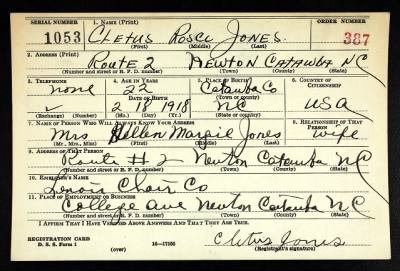 SERIAL NUMBER 1. NAME (Print) ORDER NUMBER
1053 CLETUS ROSCE JONES. 387
(First) (Middle) (Last)
2. ADDRESS (Print)
ROUTE 2 NEWTON CATAWBA NC
(Number and street or R. F. D. number) (Town) (County) (State)
3. TELEPHONE 4. AGE IN YEARS 5. PLACE OF BIRTH 6. COUNTRY OF CITIZENSHIP
none 22 Catawba Co
DATE OF BIRTH (Town or county)
2 18 1918 NC USA
(Exchange) (Number) (Mo.) (Day) (Yr.) (State or country)
7. NAME OF PERSON WHO WILL ALWAYS KNOW YOUR ADDRESS 8. RELATIONSHIP OF THAT PERSON
Mrs Hellen Margie Jones wife
(Mr., Mrs., Miss) (First) (Middle) (Last)
9. ADDRESS OF THAT PERSON
Route # 2 Newton Catawba NC
(Number and street or R. F. D. number) (Town) (County) (State)
10. EMPLOYER'S NAME
Lenoir Chair Co
11. PLACE OF EMPLOYMENT OR BUSINESS
College ave Newton Catawba NC
(Number and street or R. F. D. number) (Town) (County) (State)
I AFFIRM THAT I HAVE VERIFIED ABOVE ANSWERS AND THAT THEY ARE TRUE.
REGISTRATION CARD
D. S. S. Form 1 (over) 16—17105
Cletus Jones
(Registrant's signature)